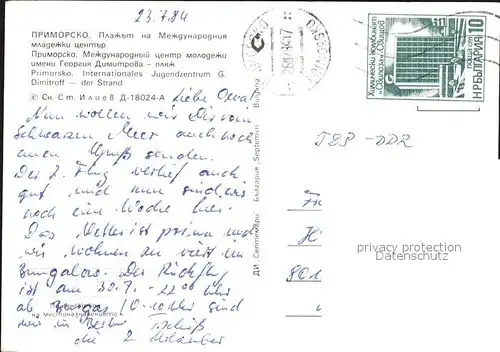 23.7.84
ПРИМОРСКО. Плажът на Международния
младежки център
Приморско. Международный центр молодежи
имени Георгия Димитрова – пляж
Primorsko. Internationales Jugendzentrum G.
Dimitroff – der Strand
© Сн. Ст. Илиев Д-18024-А
Liebe
Nun wollen wir Dir vom
Schwarzen Meer auch noch
einen Gruß senden.
Der 2. Flug verlief auch
gut und nun sind wir
noch eine Woche hier.
Das Wetter ist prima und
wir wohnen zu viert im
Bungalow. Der Rückflug
ist am 30.7. 22.00 Uhr
ab Burgas sind
wir in Berlin
die 2
ДИ „Септември“ България „Septemvri“ Bulgaria
Химически комбинат
„Свилоза“ – Свищов
поща 10 ст
НР БЪЛГАРИЯ
TEP-DDR
privacy protection
Datenschutz